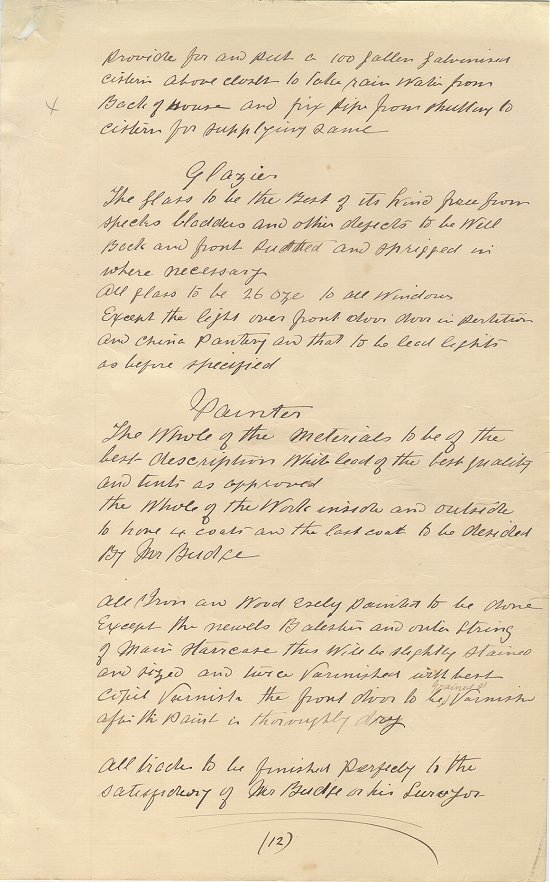 Provide for and put a 100 gallon galvanised
cistern above closet to take rain water from
x
Back of House and fix pipe from shutting to
cistern for supplying same
Glazier
The glass to be the Best of its kind free from
specks bladders and other defects to be Well
Back and front Puttied and sprigged in
where necessary
All glass to be 26 oze to all Windows
Except the light over front door door in partition
and china Pantery an that to be lead lights
as before specified
Painter
The Whole of the Materials to be of the
best description White lead of the best quality
and tints as approved
the Whole of the Work inside and outside
to have 4 coats an the last coat to be desided
By Mr Budge
All Iron an Wood usely Painted to be done
Except the newels Balester and outer String
of Main Staircase this Will be slightly stained
and sized and twice Varnished with best
Copil Varnish the front door to be grained & Varnish
after the Paint is thoroughly dry
All trades to be finished Perfectly to the
satisfactory of Mr Budge or his Surveyor
(12)